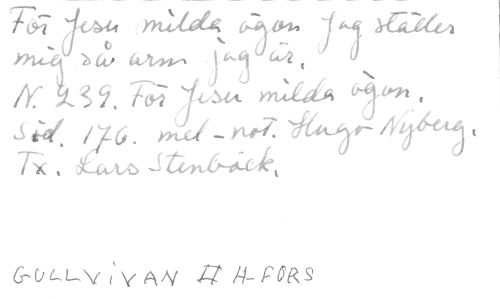 För Jesu milda ögon Jag ställer
mig så arm jag är.
N. 239. För Jesu milda ögon.
Sid. 176. mel-not. Hugo Nyberg.
Tx. Lars Stenbäck.
GULLVIVAN II H-FORS